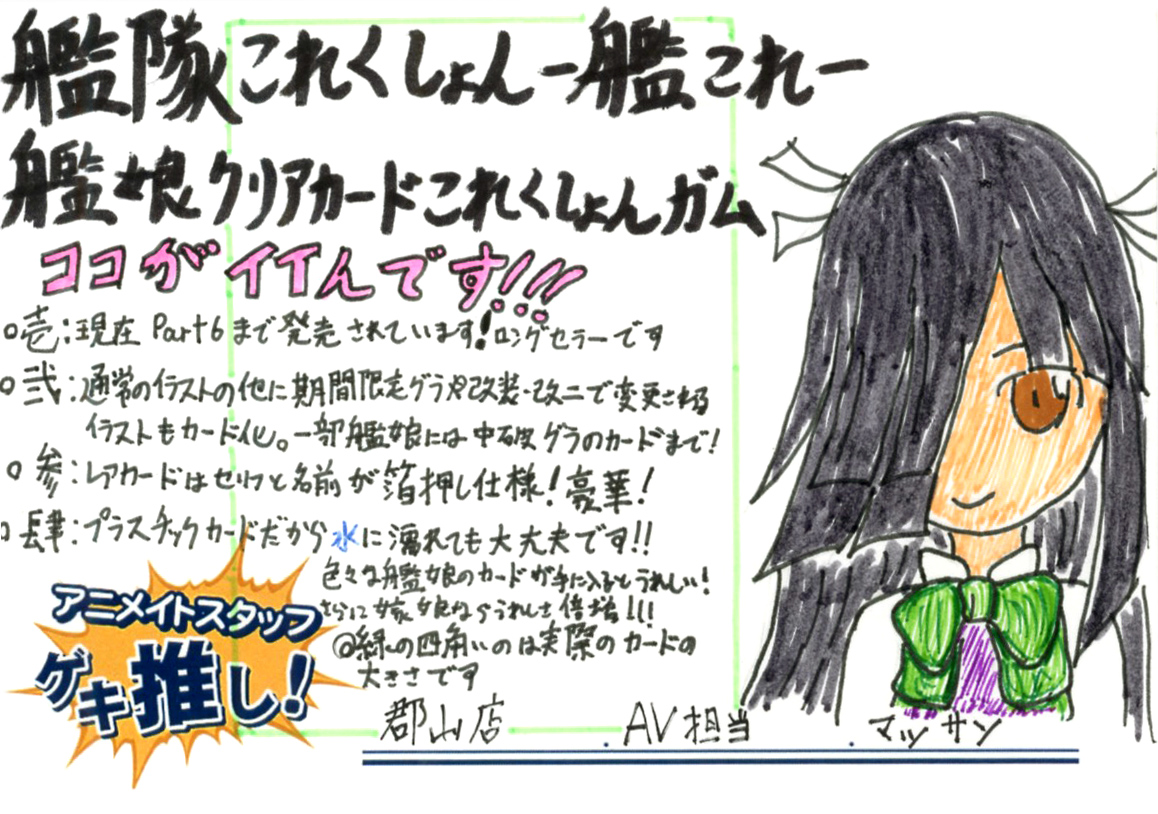 艦隊これくしょんー艦これー
艦娘クリアカードこれくしょんガム
ココがイイんです!!!
○壱:現在 Part6まで発売されています!ロングセラーです
○弐:通常のイラストの他に期間限定グラや改装・改二で変更される
イラストもカード化。一部艦娘には中破グラのカードまで!
○参:レアカードはセリフと名前が箔押し仕様!豪華!
○肆:プラスチックカードだから水に濡れても大丈夫です!!
色々な艦娘のカードが手に入るとうれしい!
さらに嫁艦娘ならうれしさ倍増!!!
◎緑の四角いのは実際のカードの
大きさです
アニメイトスタッフ
ゲキ推し!
郡山店 AV担当 マッサン